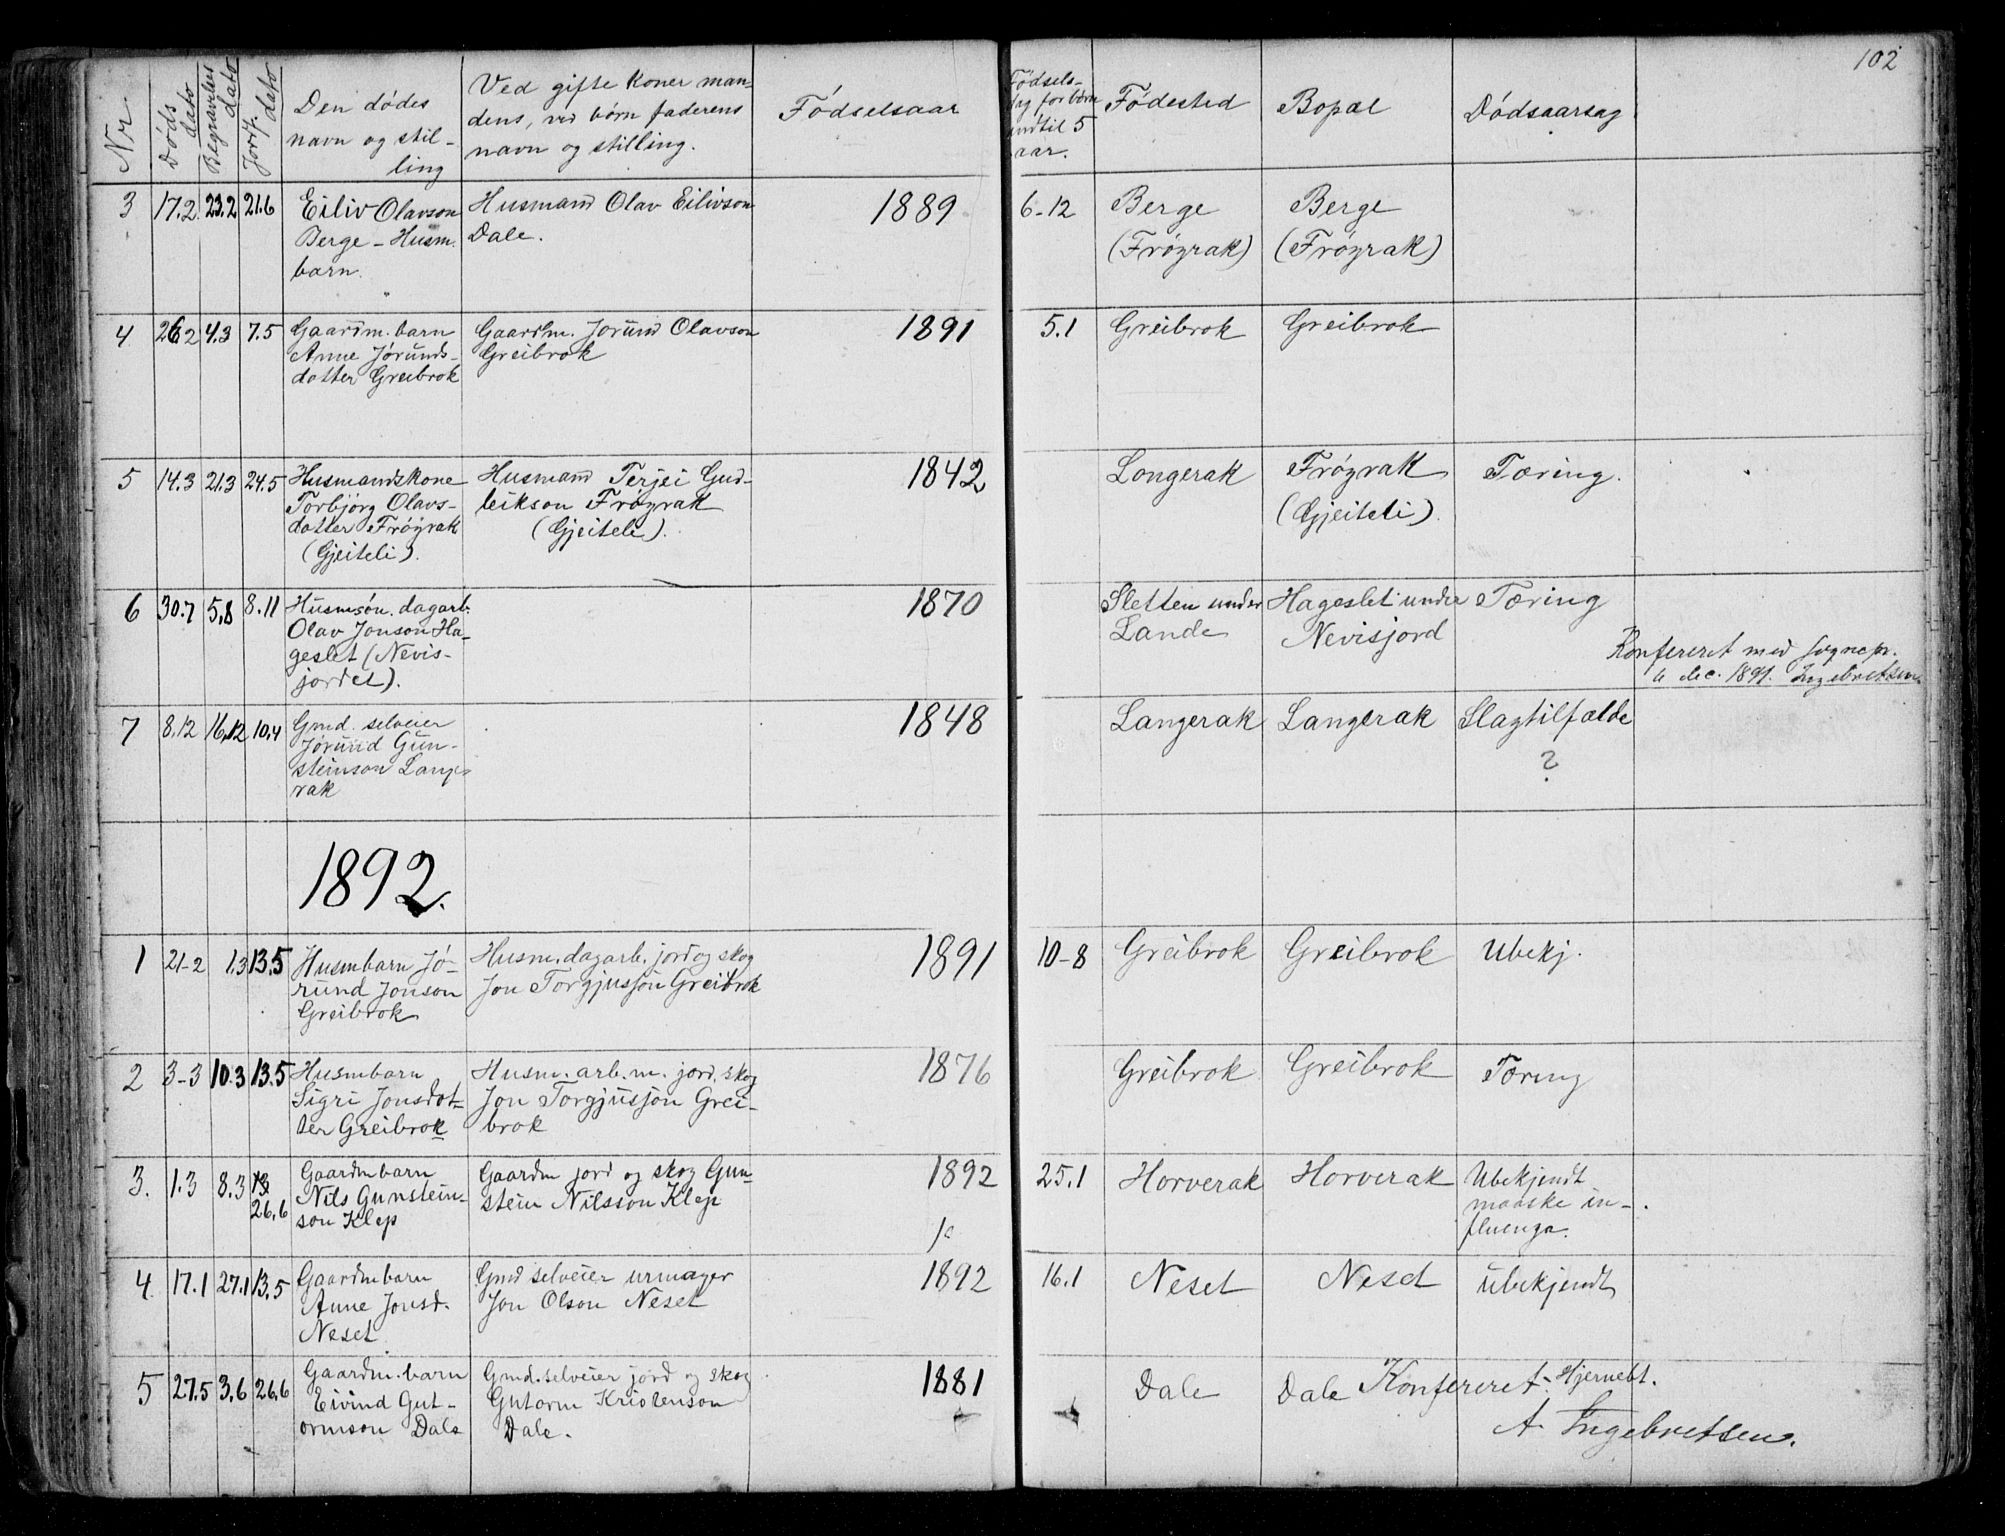 102
Nr. Døds dato Begravelses dato Jordf. dato Den dødes navn og stilling Ved gifte koner mandens, ved børn faderens navn og stilling. Fødselsaar Fødselsdag for børn indtil 5 aar. Fødested Bopæl Dødsaarsag
3 17.2 23.2 21.6 Eiliv Olavson Husmand Olav Eilivson 1889 6-12 Berge Berge
Berge - Husm. Dale. (Frøyrak) (Frøyrak)
barn.
4 26.2 4.3 7.5 Gaardm. barn Gaardm. Jørund Olavson 1891 5.1 Greibrok Greibrok
Anne Jørunds- Greibrok
datter Greibrok
5 14.3 21.3 24.5 Husmandskone Husmand Terjei Gud- 1842 Longerak Frøyrak Tæring.
Torbjørg Olavs- leikson Frøyrak (Gjeiteli).
datter Frøyrak (Gjeiteli).
(Gjeiteli).
6 30.7 5.8 8.11 Husmsøn. dagarb. 1870 Sletten under Hageslet under Tæring
Olav Jonson Ha- Lande Nevisjord
geslet (Nevis- Konfereret med sognepr.
jordet). 6 dec. 1891. Ingebretsen
7 8.12 16.12 10.4 Gmd. selveier 1848 Langerak Langerak Slagtilfælde
Jørund Gun- ?
steinson Lange-
rak
1892.
1 21-2 1.3 13.5 Husmbarn Jø- Husm. dagarb. jord og skog 1891 10-8 Greibrok Greibrok Ubekj.
rund Jonson Jon Torgjusson Greibrok
Greibrok
2 3-3 10.3 13.5 Husmbarn Husm. arb. m. jord, skog 1876 Greibrok Greibrok Tæring
Sigri Jonsdot- Jon Torgjusson Grei-
ter Greibrok brok
3. 1.3 8.3 Gaardmbarn Gaardm jord og skog Gun- 1892 25.1 Horverak Horverak Ubekjendt
26.6 Nils Gunstein- stein Nilsson Klep maaske in-
son Klep fluenza.
4 17.1 27.1 13.5 Gaardmbarn Gmd selveier urmager 1892 16.1 Neset Neset Ubekjendt
Anne Jonsd. Jon Olson Neset
Neset
5 27.5 3.6 26.6 Gaardm. barn Gmd. selveier jord og skog 1881 Dale Dale Konfereret. Hjernebt.
Eivind Gut- Gutorm Kristenson A. Ingebretsen.
ormson Dale Dale.